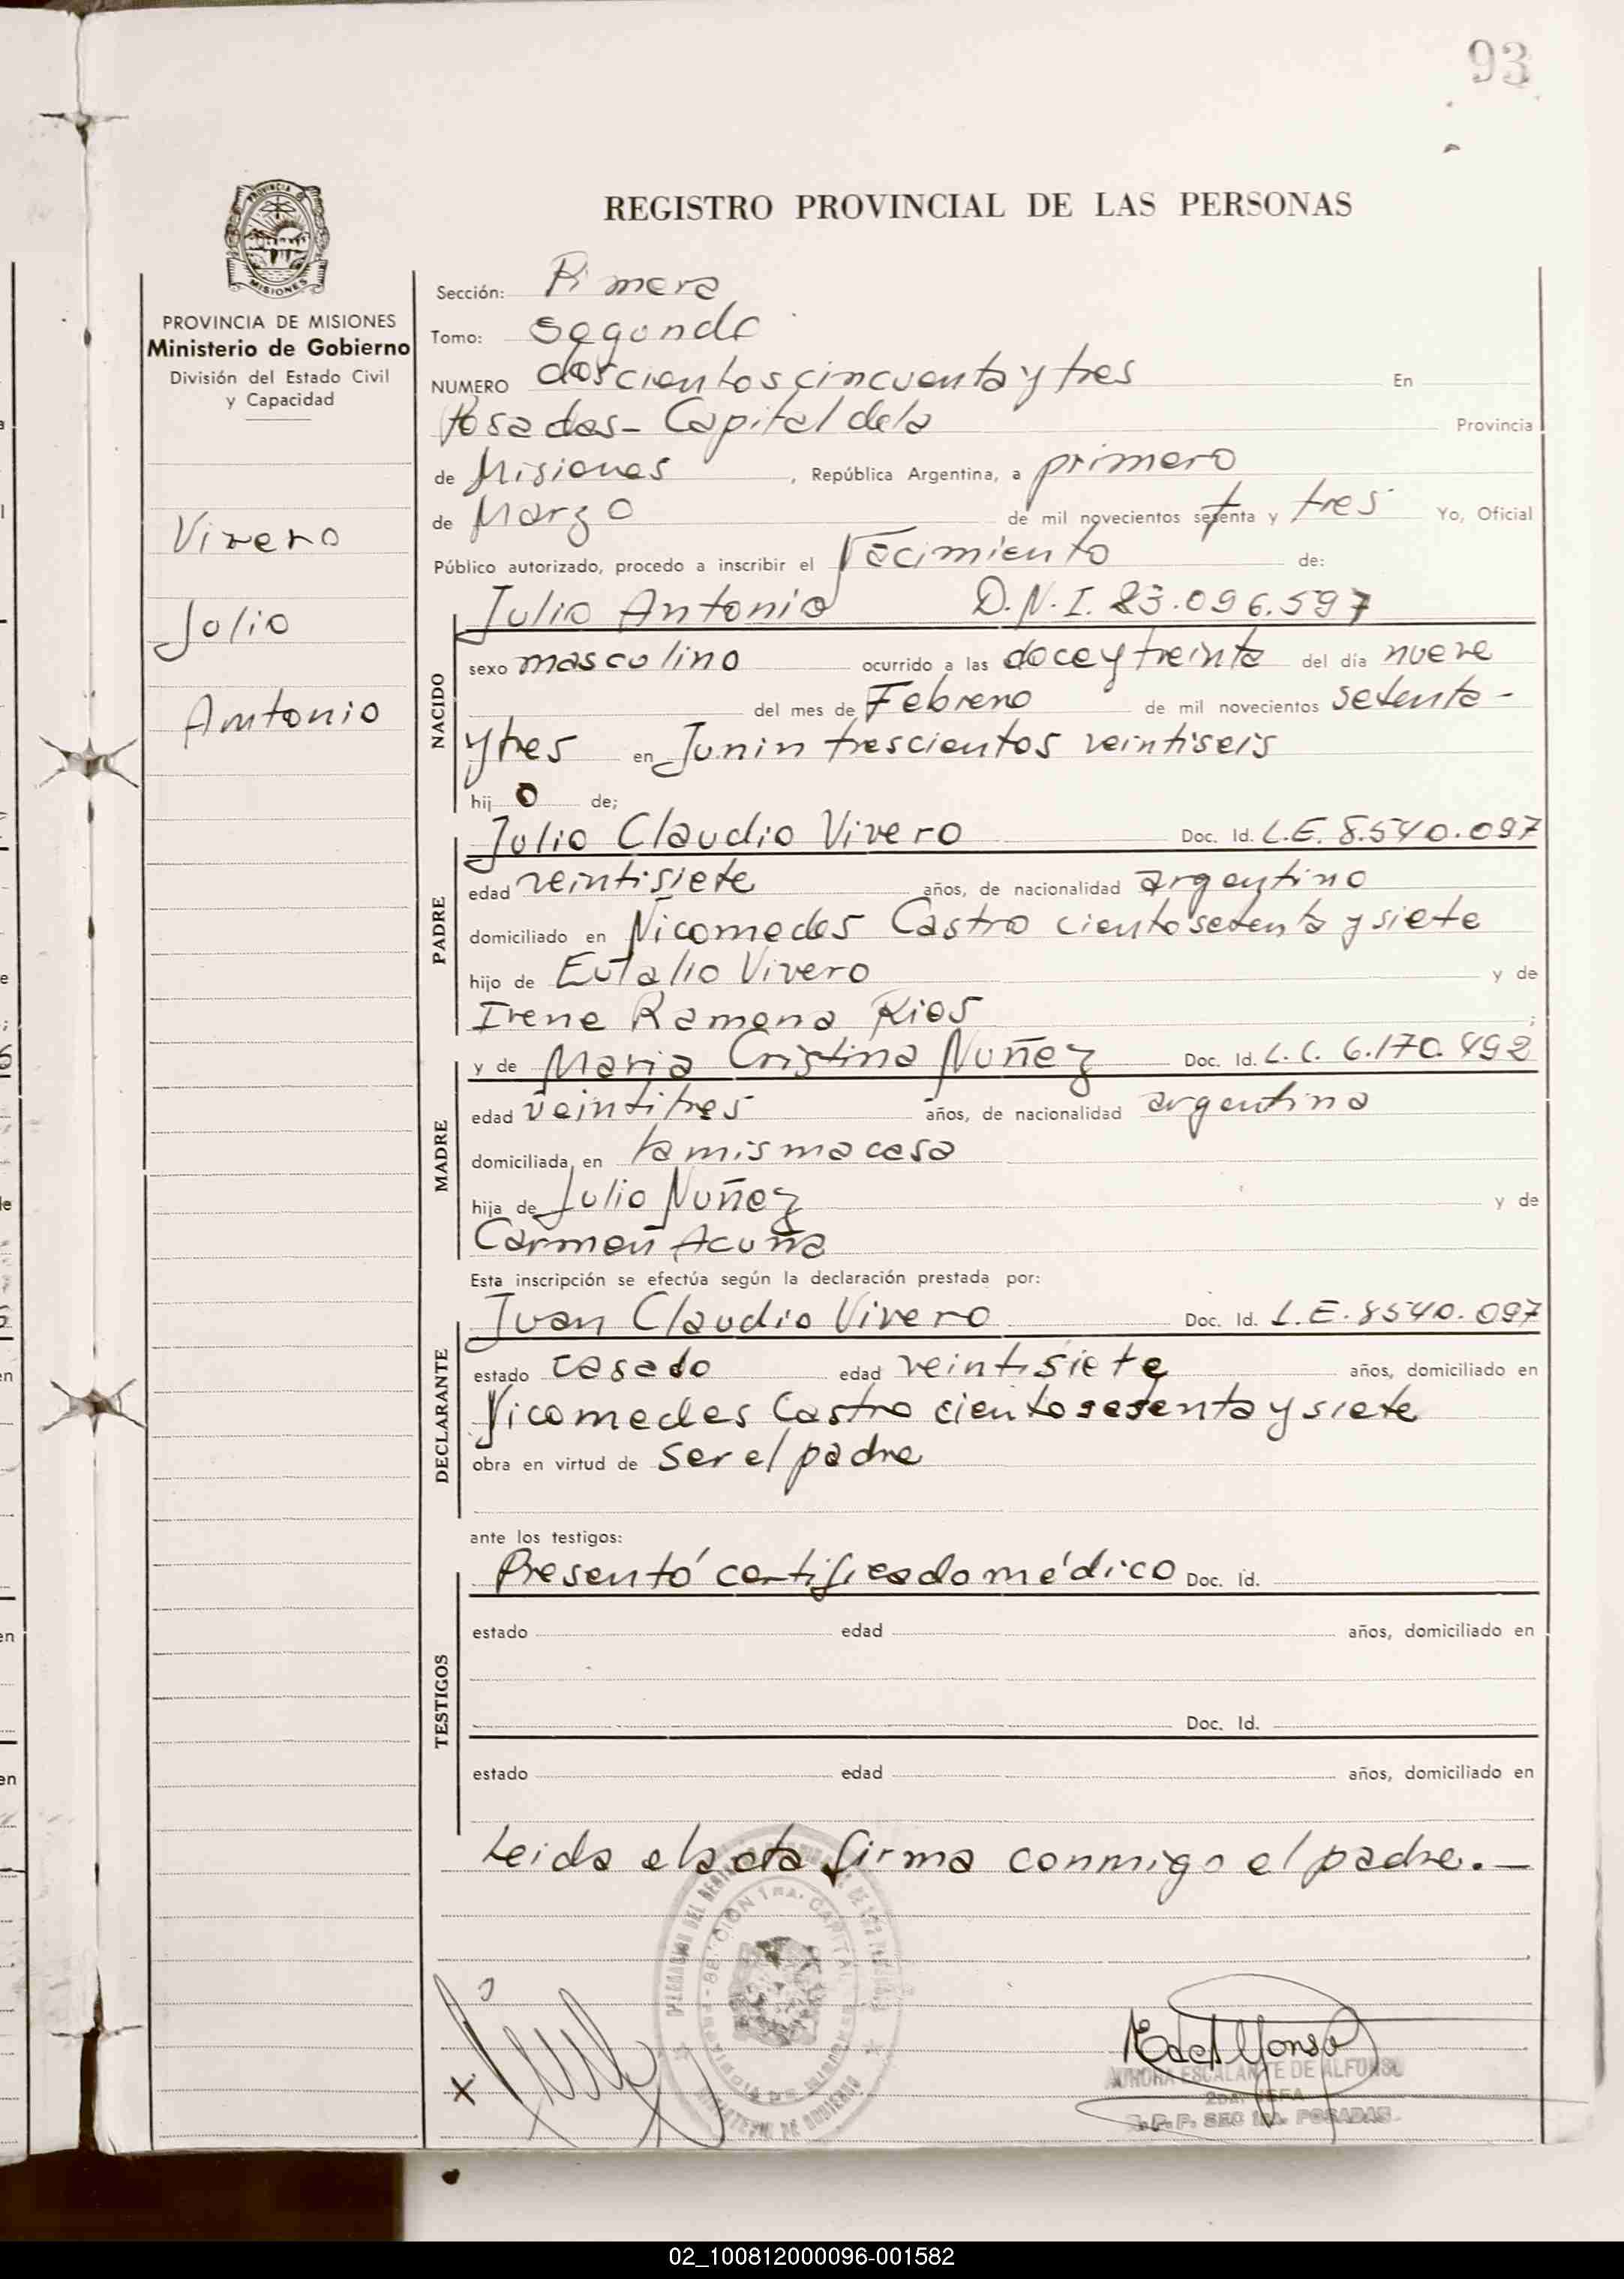 93
REGISTRO PROVINCIAL DE LAS PERSONAS
PROVINCIA DE MISIONES
Ministerio de Gobierno
División del Estado Civil
y Capacidad
Vivero
Julio
Antonio
Sección: Primera
Tomo: Segundo
NUMERO doscientos cincuenta y tres En
Posadas - Capital de la Provincia
de Misiones, República Argentina, a primero
de Marzo de mil novecientos setenta y tres Yo, Oficial
Público autorizado, procedo a inscribir el Nacimiento de:
NACIDO
Julio Antonio D.N.I. 23.096.597
sexo masculino ocurrido a las doce y treinta del día nueve
del mes de Febrero de mil novecientos setenta -
y tres en Junin trescientos veintiseis
hij o de;
PADRE
Julio Claudio Vivero Doc. Id. L.E. 8.540.097
edad veintisiete años, de nacionalidad argentino
domiciliado en Nicomedes Castro ciento setenta y siete
hijo de Eutalio Vivero y de
Irene Ramona Rios ;
MADRE
y de Maria Cristina Nuñez Doc. Id. L.C. 6.170.492
edad veintitres años, de nacionalidad argentina
domiciliada en la misma casa
hija de Julio Nuñez y de
Carmen Acuña
Esta inscripción se efectúa según la declaración prestada por:
DECLARANTE
Juan Claudio Vivero Doc. Id. L.E. 8540.097
estado casado edad veintisiete años, domiciliado en
Nicomedes Castro ciento setenta y siete
obra en virtud de ser el padre
ante los testigos:
TESTIGOS
Presentó certificado médico Doc. Id.
estado edad años, domiciliado en
Doc. Id.
estado edad años, domiciliado en
Leida el acta firma conmigo el padre. —
AURORA ESCALANTE DE ALFONSO
2da. JEFA
R.P.P. SEC 1RA. POSADAS
02_100812000096-001582